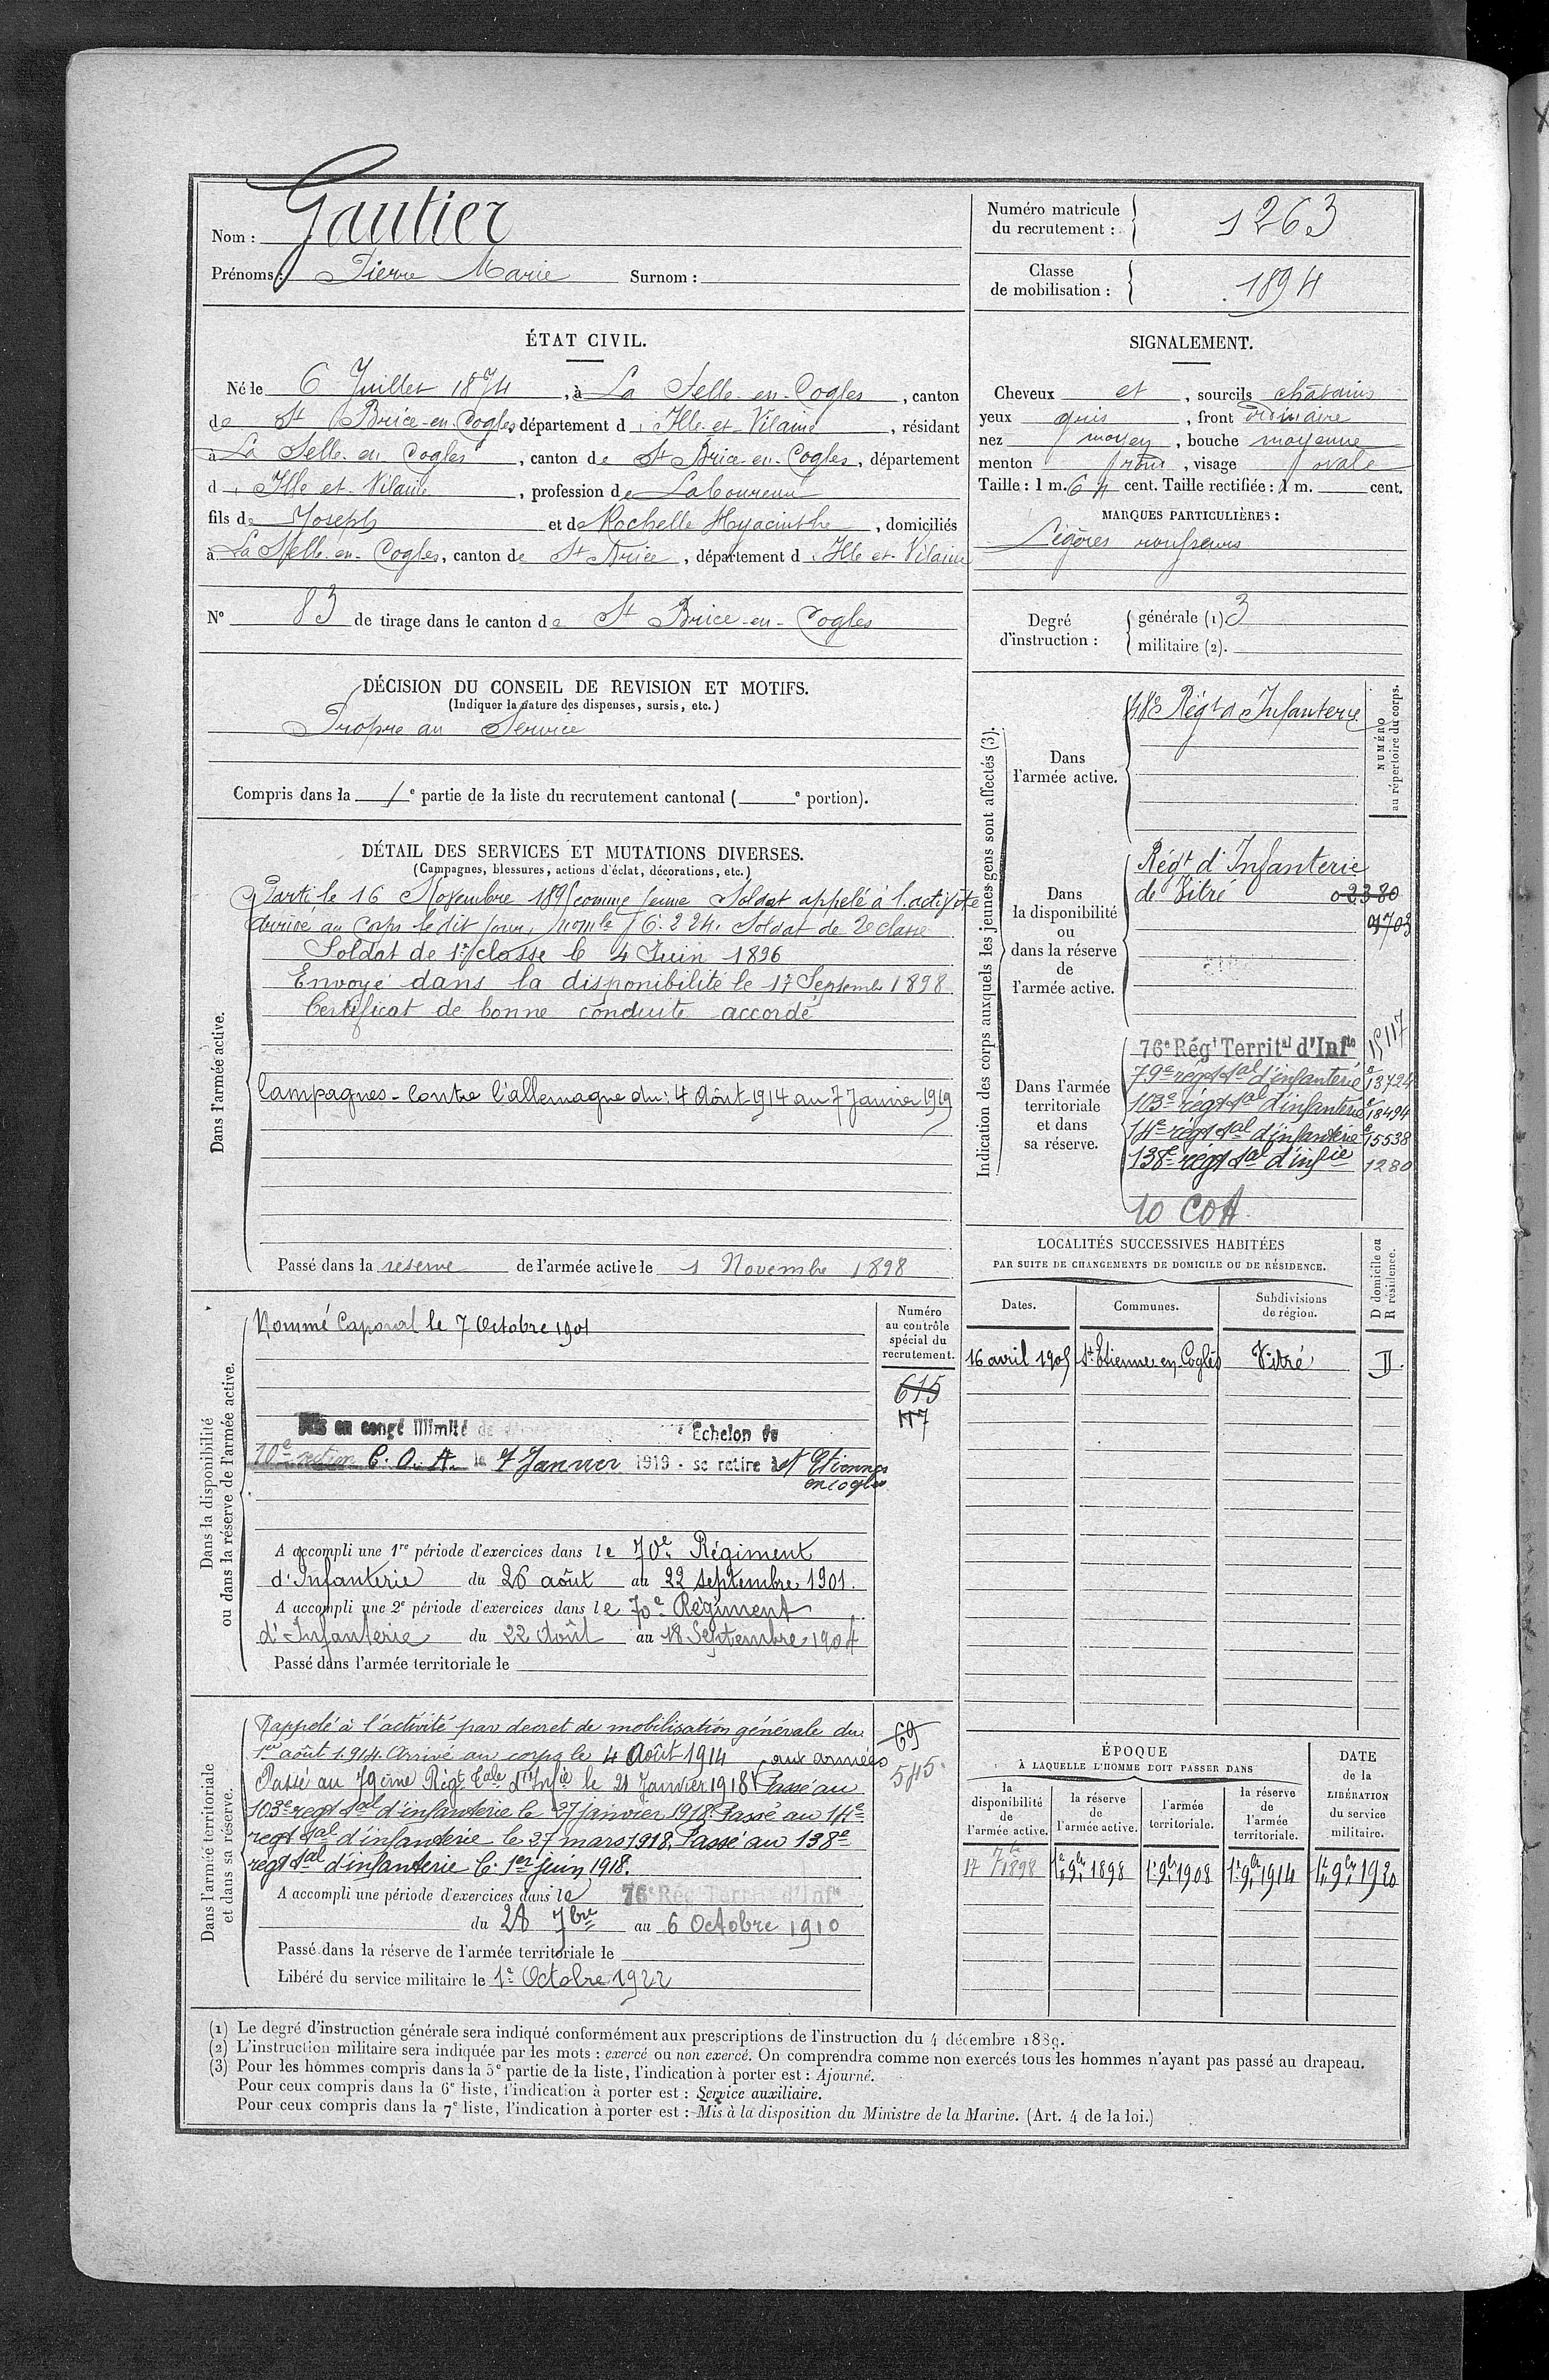 Nom : Gautier
Prénoms : Pierre Marie Surnom :
Numéro matricule du recrutement : 1263
Classe de mobilisation : 1894
ÉTAT CIVIL.
Né le 6 Juillet 1874, à La Selle-en-Cogles, canton
de St Brice-en-Cogles, département d'Ille-et-Vilaine, résidant
à La Selle en Cogles, canton de St Brice-en-Cogles, département
d'Ille et-Vilaine, profession de Laboureur
fils de Joseph et de Rochelle Hyacinthe, domiciliés
à La Selle-en-Cogles, canton de St Brice, département d'Ille et-Vilaine
N° 83 de tirage dans le canton de St Brice-en-Cogles
SIGNALEMENT.
Cheveux et, sourcils châtains
yeux gris, front ordinaire
nez moyen, bouche moyenne
menton rond, visage ovale
Taille : 1 m. 64 cent. Taille rectifiée : 1 m. cent.
MARQUES PARTICULIÈRES :
Légères rousseurs
Degré d'instruction : générale (1) 3
militaire (2).
DÉCISION DU CONSEIL DE REVISION ET MOTIFS.
(Indiquer la nature des dispenses, sursis, etc.)
Propre au Service
Compris dans la 1e partie de la liste du recrutement cantonal ( e portion).
DÉTAIL DES SERVICES ET MUTATIONS DIVERSES.
(Campagnes, blessures, actions d'éclat, décorations, etc.)
Dans l'armée active.
Parti le 16 Novembre 1895 comme jeune Soldat appelé à l'activité
Arrivé au Corps le dit jour, 6.224. Soldat de 2e classe
Soldat de 1e classe le 4 Juin 1896
Envoyé dans la disponibilité le 17 Septembre 1898
Certificat de bonne conduite accordé
Campagnes - Contre l'allemagne du : 4 Août 1914 au 7 Janvier 1919
Passé dans la réserve de l'armée active le 1 Novembre 1898
Indication des corps auxquels les jeunes gens sont affectés (3).
NUMÉRO au répertoire du corps.
Dans l'armée active.
48e Régt d'Infanterie
Dans la disponibilité ou dans la réserve de l'armée active.
Régt d'Infanterie
de Vitré 02380
Dans l'armée territoriale et dans sa réserve.
76e Régt Territal d'Infie 15117
79e régt tal d'infanterie 13724
103e régt tal d'infanterie 18494
14e régt tal d'infanterie 15538
138e régt tal d'infie 1280
10 COA
LOCALITÉS SUCCESSIVES HABITÉES
PAR SUITE DE CHANGEMENTS DE DOMICILE OU DE RÉSIDENCE.
Dates. Communes. Subdivisions de région. D domicile ou R résidence.
16 avril 1905 St Etienne en Coglès Vitré D.
Dans la disponibilité ou dans la réserve de l'armée active.
Numéro au contrôle spécial du recrutement.
Nommé Caporal le 7 Octobre 1901
615
117
Mis en congé illimité de Echelon
10e section C.O.A. le 7 Janvier 1919 - se retire à St Etienne
en cogles
A accompli une 1re période d'exercices dans le 70e Régiment
d'Infanterie du 26 août au 22 septembre 1901.
A accompli une 2e période d'exercices dans le 70e Régiment
d'Infanterie du 22 Août au 18 Septembre 1904
Passé dans l'armée territoriale le
Dans l'armée territoriale et dans sa réserve.
Rappelé à l'activité par decret de mobilisation générale du
1er août 1914. Arrivé au corps le 4 Août 1914 aux armées
Passé au 79ème Régt tale d'Infie le 21 Janvier 1918. Passé au
103e régt tal d'infanterie le 27 janvier 1918. Passé au 14e
régt tal d'infanterie le 27 mars 1918. Passé au 138e
régt tal d'infanterie le 1er juin 1918.
69
545
A accompli une période d'exercices dans le 76e Rég Territal d'Infie
du 28 7bre au 6 Octobre 1910
Passé dans la réserve de l'armée territoriale le
Libéré du service militaire le 1e Octobre 1922
ÉPOQUE
À LAQUELLE L'HOMME DOIT PASSER DANS
la disponibilité de l'armée active. la réserve de l'armée active. l'armée territoriale. la réserve de l'armée territoriale.
DATE de la LIBÉRATION du service militaire.
17 7bre 1898 1e 9bre 1898 1e 9bre 1908 1e 9bre 1914 1e 9bre 1920
(1) Le degré d'instruction générale sera indiqué conformément aux prescriptions de l'instruction du 4 décembre 1889.
(2) L'instruction militaire sera indiquée par les mots : exercé ou non exercé. On comprendra comme non exercés tous les hommes n'ayant pas passé au drapeau.
(3) Pour les hommes compris dans la 5e partie de la liste, l'indication à porter est : Ajourné.
Pour ceux compris dans la 6e liste, l'indication à porter est : Service auxiliaire.
Pour ceux compris dans la 7e liste, l'indication à porter est : Mis à la disposition du Ministre de la Marine. (Art. 4 de la loi.)